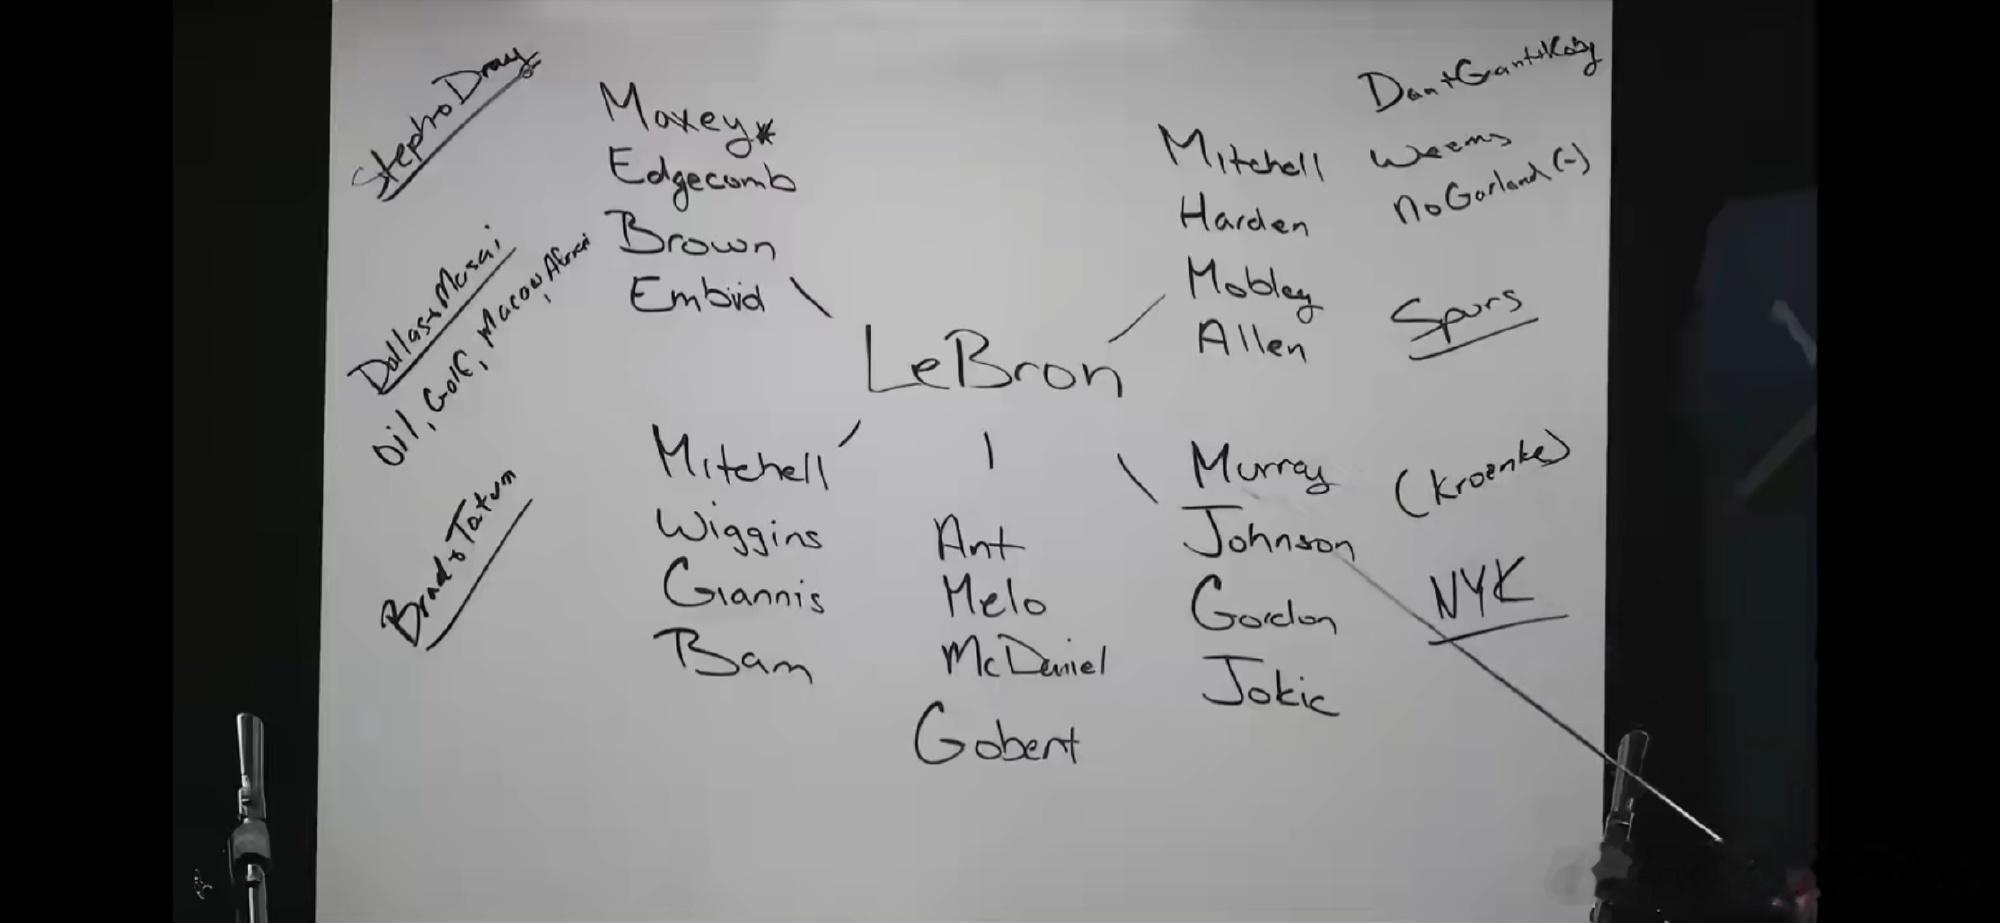 Steph+Dray
Maxey*
Edgecomb
Brown
Embiid
Dan+Grant+Koby
Mitchell
Weems
Harden
No Garland (-)
Mobley
Allen
Spurs
Dallas+Masai
Oil, Golf, Macow, 
LeBron
Mitchell
Wiggins
Giannis
Bam
Ant
Melo
McDaniel
Gobert
Murray
(Kroenke)
Johnson
Gordon
Jokic
NYK
Brad+Tatum